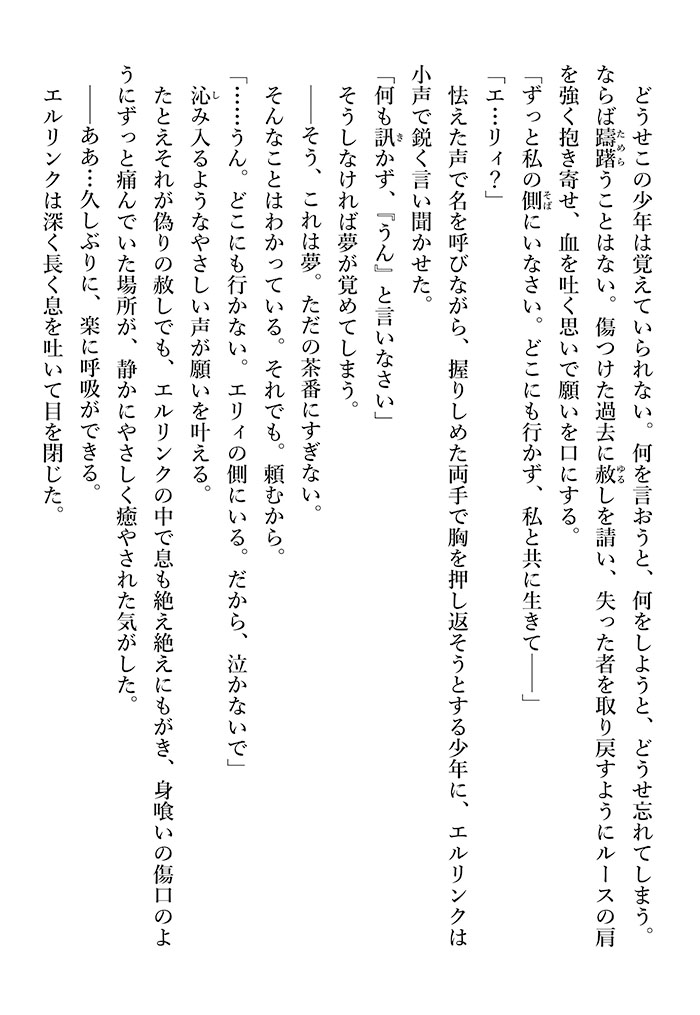 どうせこの少年は覚えていられない。何を言おうと、何をしようと、どうせ忘れてしまう。
ならば躊躇うことはない。傷つけた過去に赦しを請い、失った者を取り戻すようにルースの肩
を強く抱き寄せ、血を吐く思いで願いを口にする。
「ずっと私の側にいなさい。どこにも行かず、私と共に生きて――」
「エ…リィ？」
　怯えた声で名を呼びながら、握りしめた両手で胸を押し返そうとする少年に、エルリンクは
小声で鋭く言い聞かせた。
「何も訊かず、『うん』と言いなさい」
　そうしなければ夢が覚めてしまう。
　――そう、これは夢。ただの茶番にすぎない。
　そんなことはわかっている。それでも。頼むから。
「……うん。どこにも行かない。エリィの側にいる。だから、泣かないで」
　沁み入るようなやさしい声が願いを叶える。
　たとえそれが偽りの赦しでも、エルリンクの中で息も絶え絶えにもがき、身喰いの傷口のよ
うにずっと痛んでいた場所が、静かにやさしく癒やされた気がした。
　――ああ…久しぶりに、楽に呼吸ができる。
　エルリンクは深く長く息を吐いて目を閉じた。